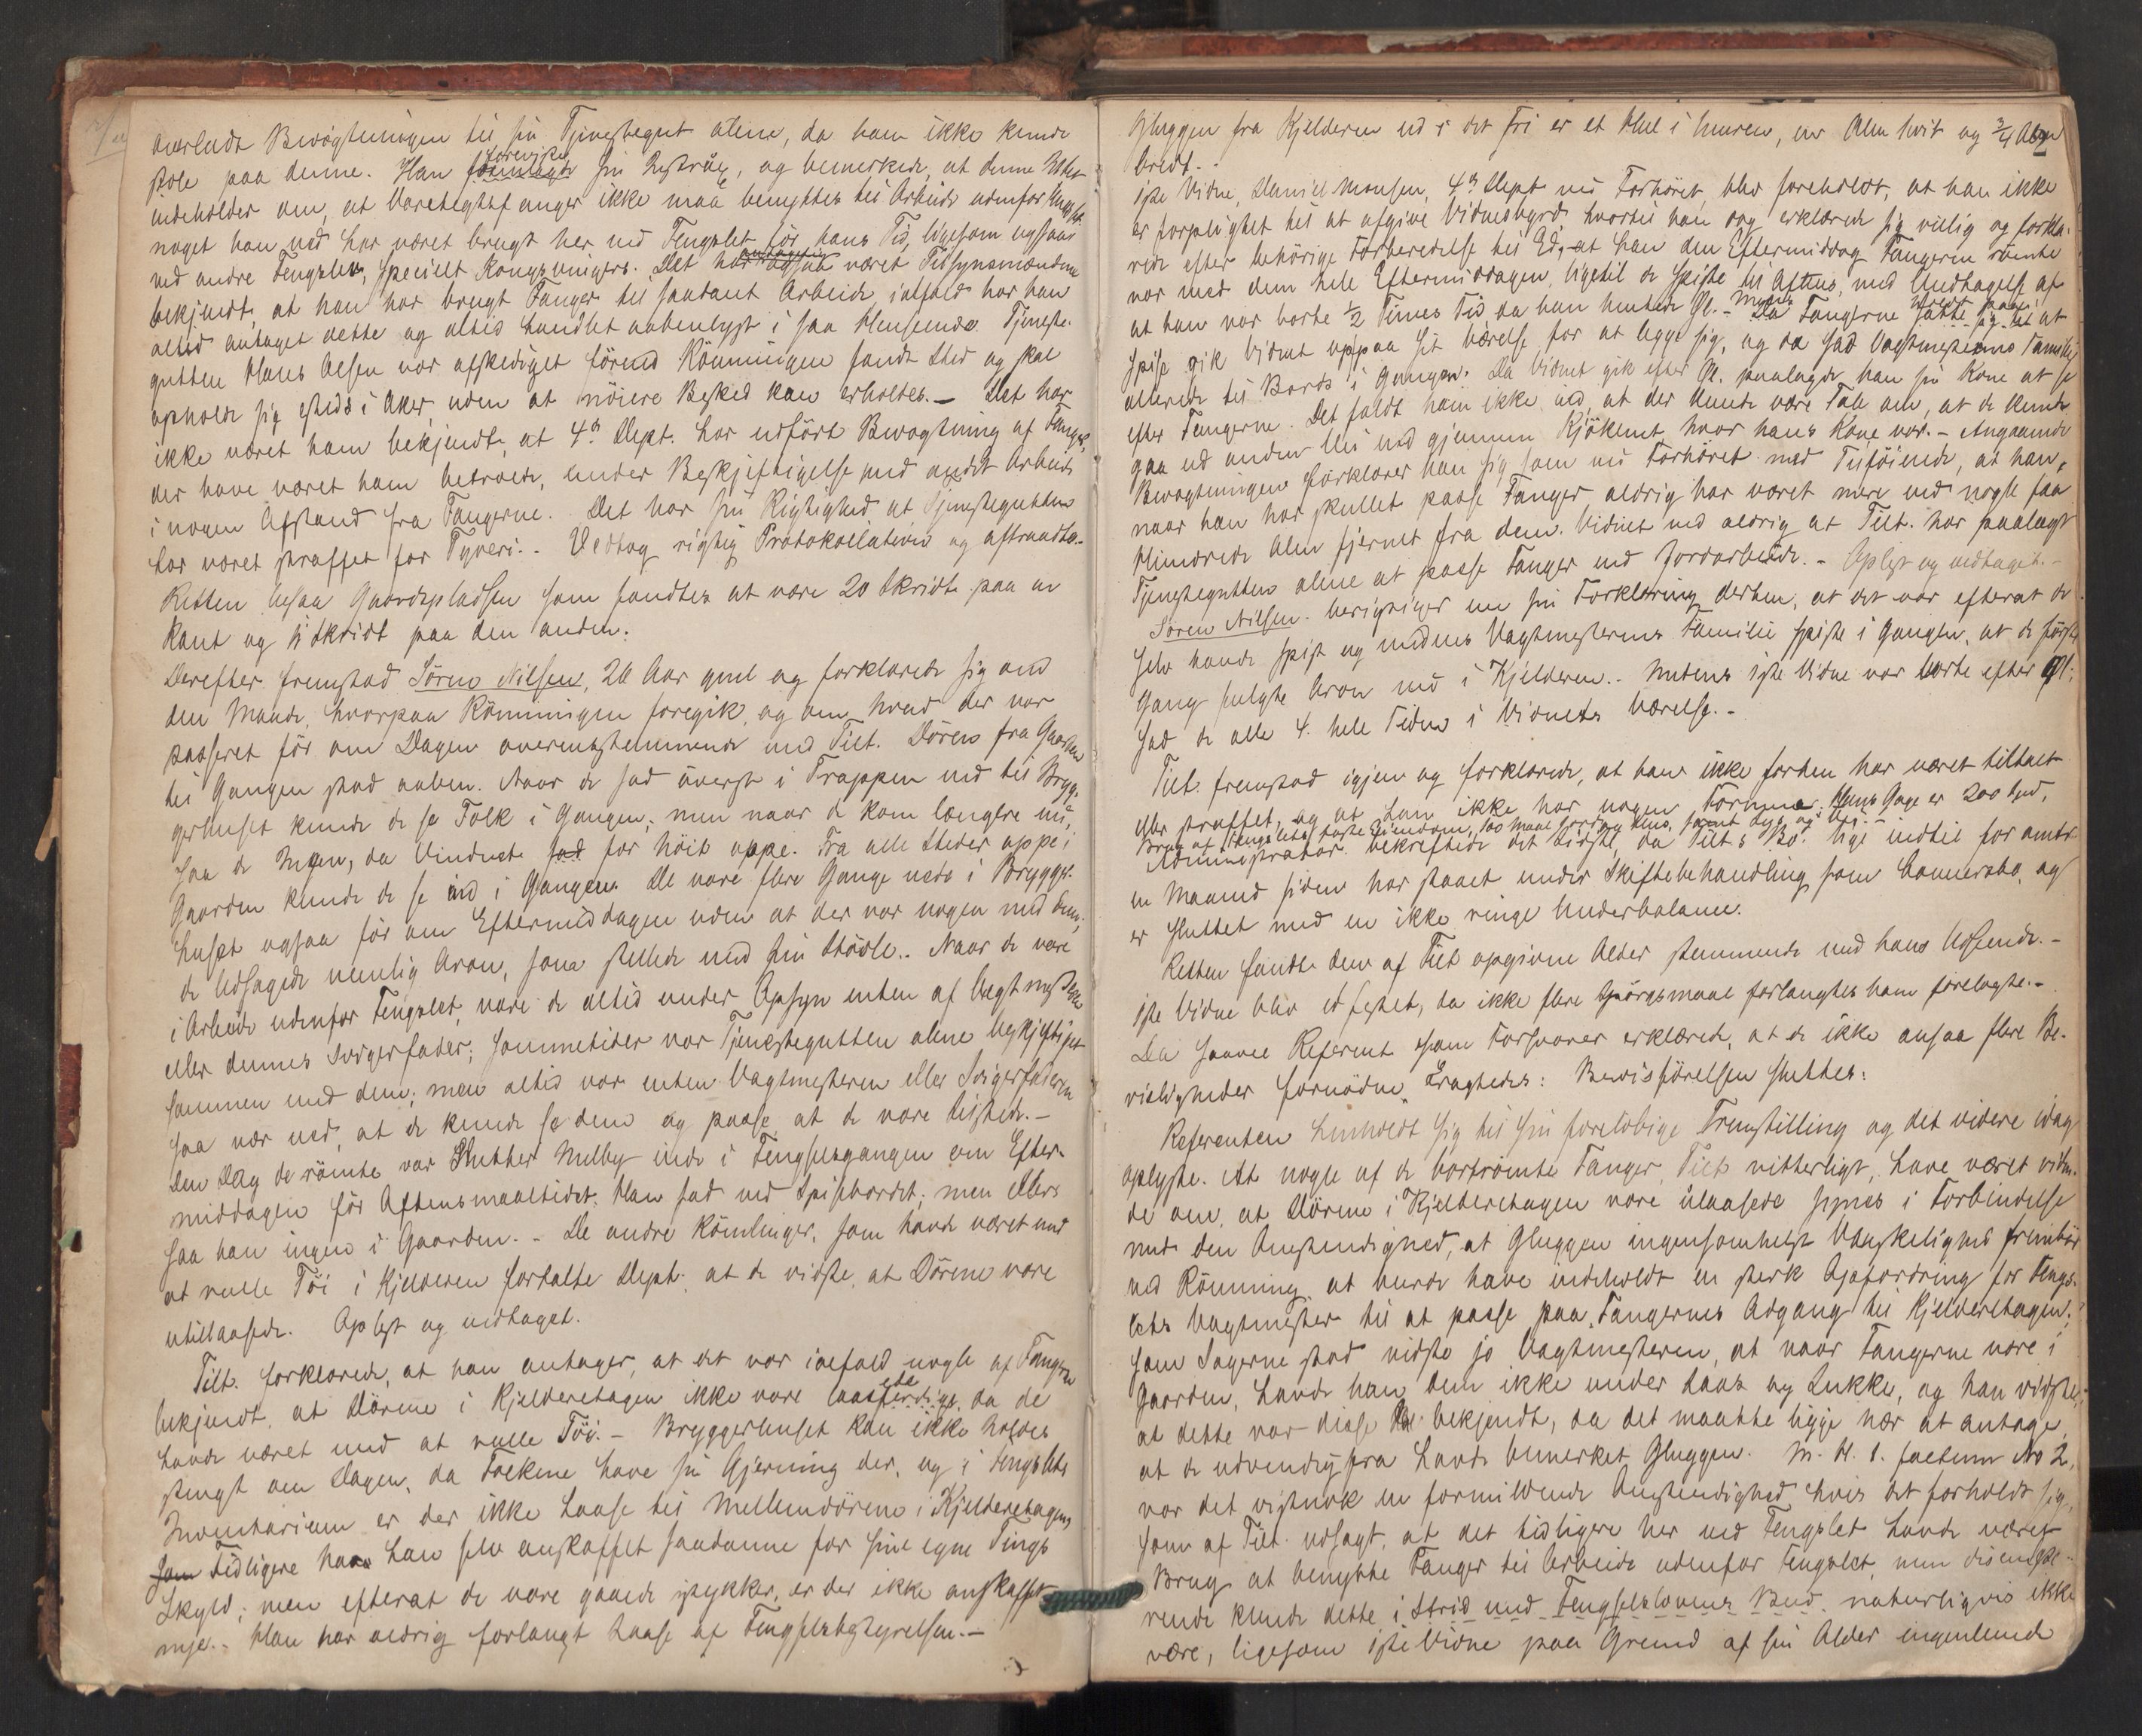 overladt Bevogtningen til sin Tjenestegut alene, da han ikke kunde
stole paa denne. Han foreviste sin Instrux, og bemerkede, at denne Intet
indeholder om, at Varetegtsfanger ikke maa benyttes til Arbeide udenfor
noget han ved har været brugt her ved Fengslet før hans Tid, ligesom ogsaa
ved andre Fengsler, specielt Kongsvingers. Det har været Tilsynsmændene
bekjendt, at han har brugt Fanger til saadant Arbeide, ialfald har han
altid antaget dette og altid handlet aabenlyst i saa Henseende. Tjeneste-
gutten Hans Olsen var afskediget førend Rømningen fandt Sted og skal
opholde sig etsteds i Aker, uden at nøiere Besked kan erholdes. — Det har
ikke været ham bekjendt, at 4de Dept. har udført Bevogtning af Fanger,
der have været ham betroede, under Beskjeftigelse med andet Arbeide
i nogen Afstand fra Fangerne. Det har sin Rigtighed at Tjenestegutten
har været straffet for Tyveri. - Vedtog rigtig Protokollation og aftraadte.
Retten besaa Gaardspladsen som fandtes at være 20 Skridt paa en
Kant og Skridt paa den anden.
Derefter fremstod Søren Nilsen, 26 Aar gml og forklarede sig om
den Maade, hvorpaa Rømningen foregik, og om hvad der var
passeret før om Dagen overensstemmende med Tilt. Døren fra Gaarden
til Gangen stod aaben. Naar de sad øverst i Trappen ned til Bryg-
gerhuset kunde de se Folk i Gangen; men naar de kom længere ned,
saa de Ingen, da Vinduet sad for høit oppe. Fra alle Steder oppe i
Gaarden kunde de se ind i Gangen. De vare flere Gange nede i Brygger-
huset ogsaa før om Eftermiddagen uden at der var nogen med dem;
de Udsagde nemlig Aron, som stellede med sin Støvle. - Naar de vare
i Arbeide udenfor Fengslet, vare de altid under Opsyn enten af Vagtmesteren
eller dennes Svigerfader; sommetider var Tjenestegutten alene beskjeftiget
sammen med dem; men altid var enten Vagtmesteren eller Svigerfaderen
saa nær ved, at de kunde se dem og passe at de vare tilstede. -
Den Dag de rømte var Slutter Melby inde i Fengselsgangen om Efter-
middagen før Aftensmaaltidet. Han sad ved Spisebordet; men ellers
saa han ingen i Gaarden. - De andre Rømlinger, som havde været med
at rulle Tøi i Kjelderen fortalte Dept. at de vidste, at Dørene vare
utillaasede. Oplest og vedtaget.
Tilt. forklarede, at han antager, at det var ialfald nogle af Fangerne
bekjendt, at Dørene i Kjelderetagen ikke vare laasede, da de
havde været med at rulle Tøi. - Bryggerhuset kan ikke holdes
stengt om Dagen, da Folkene have sin Gjerning der, og i Fengslets
Inventarium er der ikke Laase til Mellemdørene i Kjelderetagen,
Som Tidligere har han selv anskaffet saadanne for sine egne Tings
Skyld; men efterat de vare gaaede istykker, er der ikke anskaffet
nye. - Han har aldrig forlangt Laase af Fengselsbestyrelsen. -
Gluggen fra Kjelderen ud i det Fri er et Hul i Muren, en Alen hvit og 3/4 Alen
bredt. -
1ste Vidne, Daniel Monsen, 4de Dept ved Forhøret, blev foreholdt, at han ikke
er forpligtet til at afgive Vidnesbyrd hvortil han dog erklærede sig villig og forkla-
rede efter behørige Forberedelse til Ed, at han den Eftermiddag Fangerne rømte
var med dem hele Eftermiddagen, ligetil de spiste til Aftens, med Undtagelse af
at han var borte 1/2 Times Tid da han hentede Øl. - Da Fangerne satte sig til at
spise gik Vidnet op paa sit Værelse for at legge sig, og da sad Vagtmesterens Familie
allerede til Bords i Gangen. Da Vidnet gik efter Øl. paalagde han sin Kone at se
efter Fangerne. Det faldt ham ikke ind, at der kunde være Tale om, at de kunde
gaa ud anden Vei end gjennem Kjøkkenet, hvor hans Kone var. - Angaaende
Bevogtningen forklarer han sig som ved Forhøret med Tilføiende, at han,
naar han har skullet passe Fanger aldrig har været mere end nogle faa
Hundrede Alen fjernet fra dem. Vidnet ved aldrig at Tilt. har paalagt
Tjenestegutten alene at passe Fanger ved Jordarbeide. - Oplest og vedtaget. -
Søren Nilsen berigtiger nu sin Forklaring derhen, at det var efterat de
selv havde spist og medens Vagtmesterens Familie spiste i Gangen, at de første
Gang fulgte Aron ned i Kjelderen. - Medens 1ste Vidne var borte efter Øl.
sad de alle 4. hele Tiden i Vidnets Værelse. -
Tilt. fremstod igjen og forklarede, at han ikke forhen har været tiltalt
eller straffet, og at han ikke har nogen Formue. Hans Gage er 200 Spd,
Administrator bekreftede det sidste, da Tilt.s Bo. lige indtil for omtr
en Maaned siden har staaet under Skiftebehandling som Concursbo, og
er sluttet med en ikke ringe Underbalance.
Retten fandt den af Tilt. opgivne Alder stemmende med hans Udseende. -
1ste Vidne blev edfestet, da ikke flere Spørgsmaal forlangtes ham forelagte. -
Da saavel Referent som Forsvarer erklærede, at de ikke ansaa flere Be-
visligheder fornødne, Eragtedes: Bevisførelsen sluttes:
Referenten henholdt sig til sin foreløbige Fremstilling og det videre idag
oplyste. At nogle af de bortrømte Fanger, Tilt. vitterligt, have været viden-
de om, at Dørene i Kjelderetagen vare ulaasede synes i Forbindelse
med den Omstendighed, at Gluggen ingensomhelst Vanskelighed frembød
ved Rømning at burde have indeholdt en sterk Opfordring for Fengs-
lets Vagtmester til at passe paa Fangernes Adgang til Kjelderetagen;
som Sagerne stod vidste jo Vagtmesteren, at naar Fangerne vare i
Gaarden, havde han dem ikke under Laas og Lukke, og han vidste,
at dette var disse bekjendt, da det maatte ligge nær at antage,
at de udvendig fra havde bemerket Gluggen. M. H. t. factum No 2,
var det vistnok en formildende Omstendighed hvis det forholdt sig,
som af Tilt. udsagt, at det tidligere her ved Fengslet havde været
Brug at benytte Fanger til Arbeide udenfor Fengslet, men disculpe-
rende kunde dette i Strid med Fengselslovens Bud naturligvis ikke
være, ligesom 1ste Vidne paa Grund af sin Alder ingenlunde